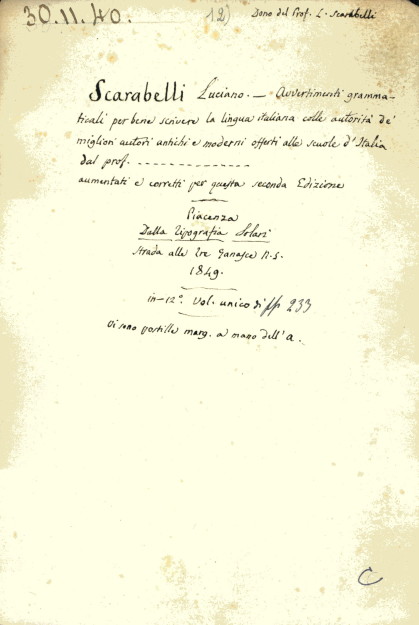 30.11.40. 12) Dono del Prof. L. Scarabelli
Scarabelli Luciano. — Avvertimenti gramma-
ticali per bene scrivere la lingua italiana colle autorità de'
migliori autori antichi e moderni offerti alle scuole d'Italia
dal prof. - - - - - - - - - - - - - -
aumentati e corretti per questa seconda Edizione
Piacenza
Dalla Tipografia Solari
Strada alle Tre Ganasce N.5.
1849.
in-12°. Vol. unico di pp 233
Vi sono postille marg. a mano dell'a.
C